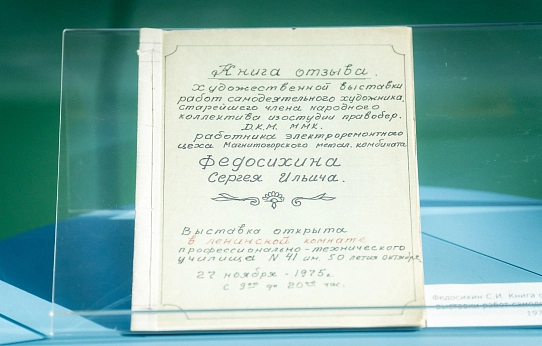 Книга отзыва.
художественной выставки
работ самодеятельного художника,
старейшего члена народного
коллектива изостудии правобер.
Д.К.М. ММК.
работника электроремонтного
цеха Магнитогорского метал. комбината
Федосихина
Сергея Ильича.
Выставка открыта
в ленинской комнате
профессионально-технического
училища N 41 им. 50 летия Октября,
27 ноября - 1975г.
с 9 00 до 20 00 час.
Федосихин С.И. Книга о
выставки работ самоде
197